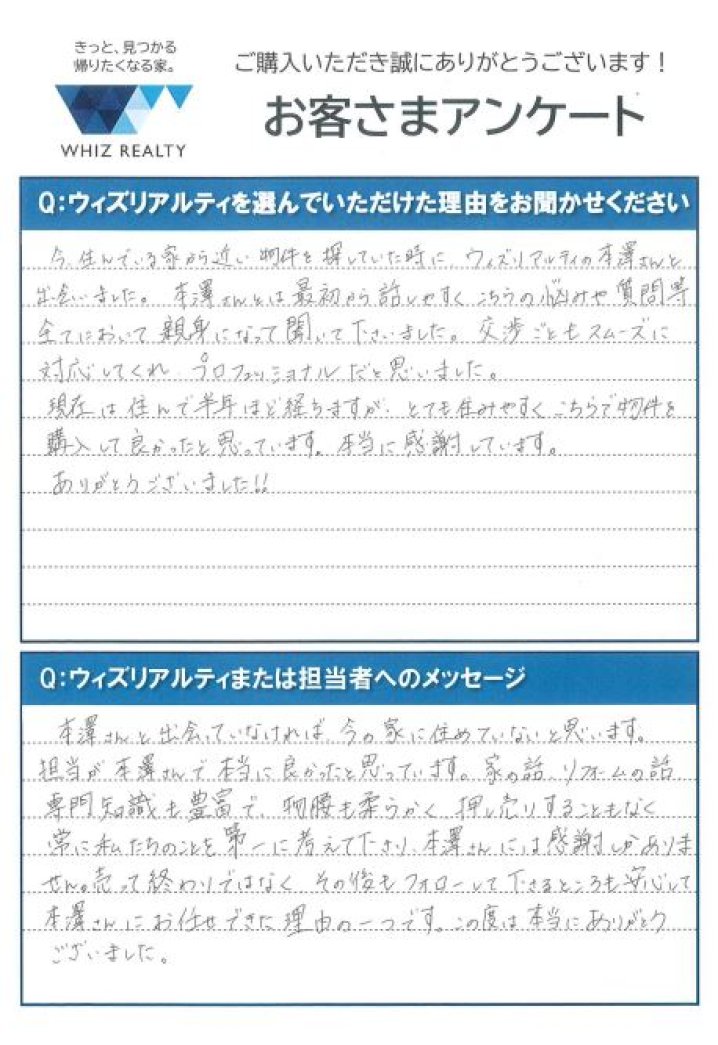 きっと、見つかる
帰りたくなる家。
WHIZ REALTY
ご購入いただき誠にありがとうございます！
お客さまアンケート
Q：ウィズリアルティを選んでいただけた理由をお聞かせください
今、住んでいる家から近い物件を探していた時に、ウィズリアルティの本澤さんと
出会いました。本澤さんとは最初から話しやすくこちらの悩みや質問等
全てにおいて親身になって聞いて下さいました。交渉ごともスムーズに
対応してくれ、プロフェッショナルだと思いました。
現在は住んで半年ほど経ちますが、とても住みやすくこちらで物件を
購入して良かったと思っています。本当に感謝しています。
ありがとうございました!!
Q：ウィズリアルティまたは担当者へのメッセージ
本澤さんと出会っていなければ、今の家に住めていないと思います。
担当が本澤さんで本当に良かったと思っています。家の話、リフォームの話
専門知識も豊富で、物腰も柔らかく、押し売りすることもなく
常に私たちのことを第一に考えて下さり、本澤さんには感謝しかありま
せん。売って終わりではなく、その後もフォローして下さるところも安心して
本澤さんにお任せできた理由の一つです。この度は本当にありがとう
ございました。